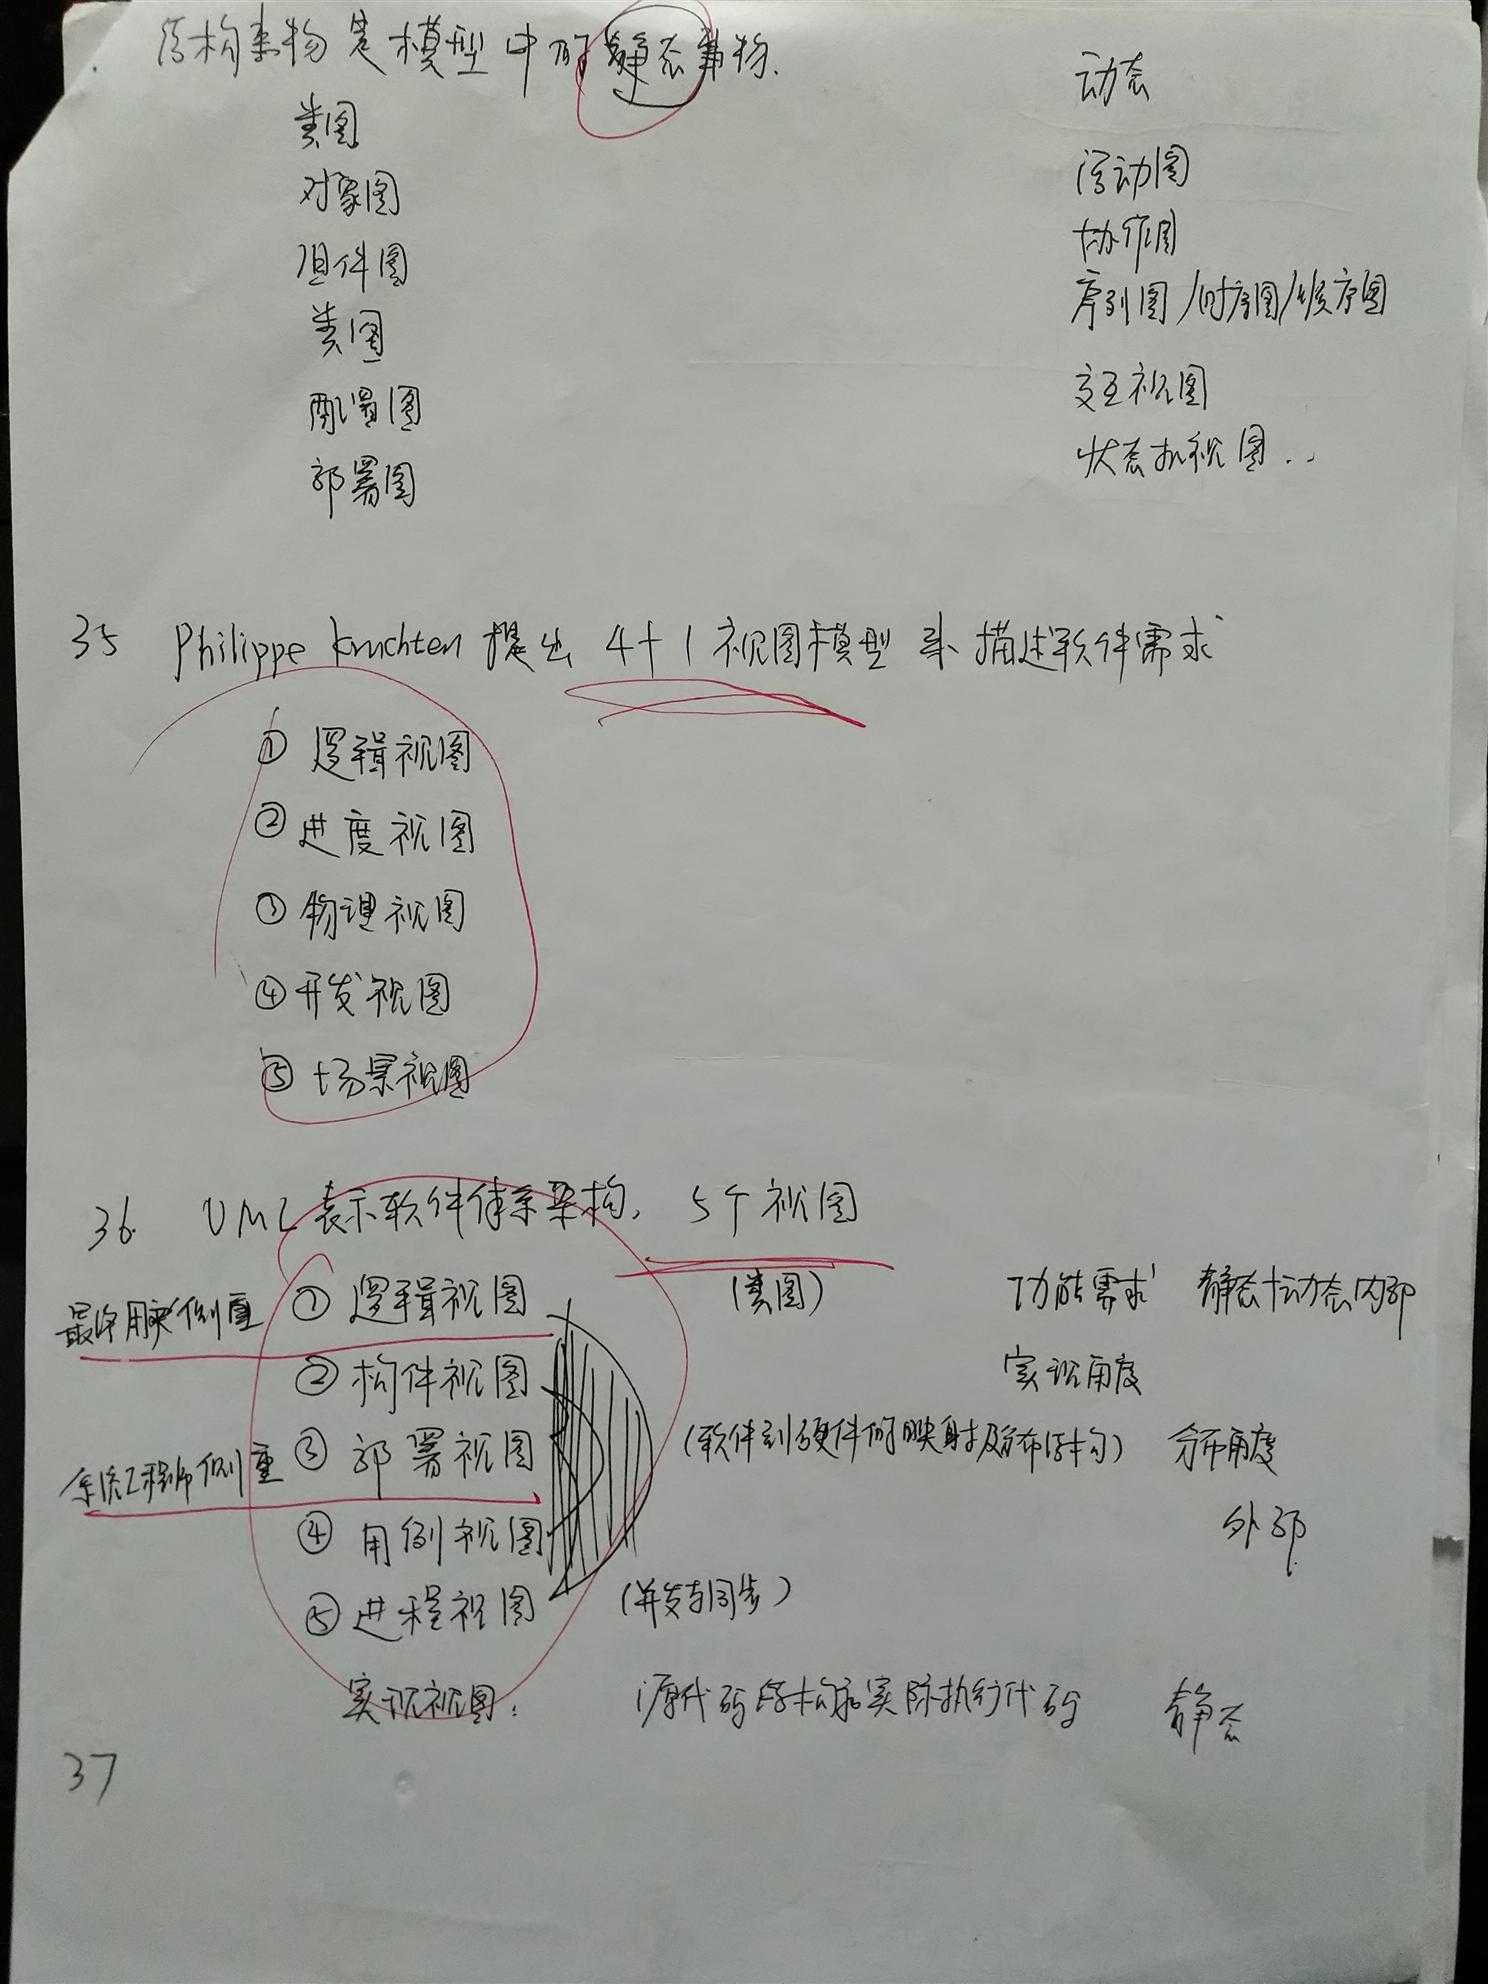 结构事物是模型中的静态事物.
动态
类图
对象图
组件图
类图
配置图
部署图
活动图
协作图
序列图/时序图/顺序图
交互视图
状态机视图..
35 Philippe Kruchten 提出 4+1视图模型 来描述软件需求
① 逻辑视图
② 进度视图
③ 物理视图
④ 开发视图
⑤ 场景视图
36. UML表示软件体系架构, 5个视图
最终用户侧重 ① 逻辑视图 (类图) 功能需求 静态+动态内部
② 构件视图 实现角度
系统工程师侧重 ③ 部署视图 (软件到硬件的映射及分布结构) 分布角度
④ 用例视图 外部
⑤ 进程视图 (并发与同步)
实现视图: 源代码结构和实际执行代码 静态
37